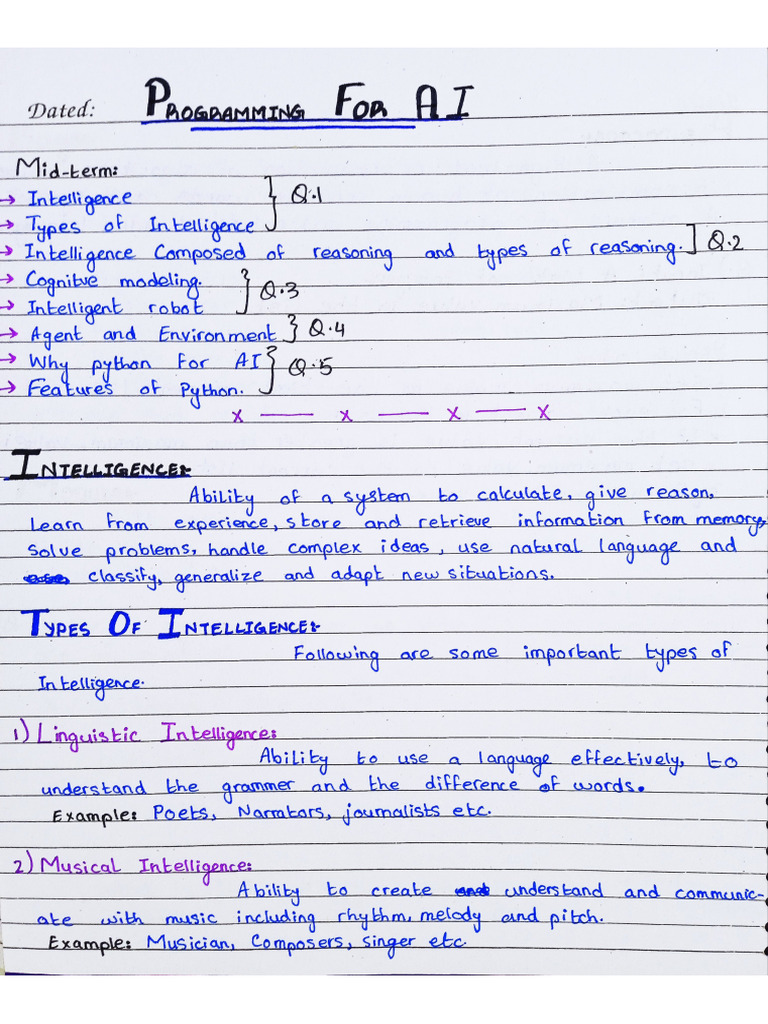 Dated: PROGRAMMING FOR AI
Mid-term:
→ Intelligence
→ Types of Intelligence } Q.1
→ Intelligence Composed of reasoning and types of reasoning. ] Q.2
→ Cognitve modeling.
→ Intelligent robot } Q.3
→ Agent and Environment } Q.4
→ Why python for AI
→ Features of Python. } Q.5
x — x — x — x
INTELLIGENCE:-
Ability of a system to calculate, give reason,
Learn from experience, store and retrieve information from memory,
Solve problems, handle complex ideas, use natural language and
classify, generalize and adapt new situations.
TYPES OF INTELLIGENCE:-
Following are some important types of
Intelligence.
1) Linguistic Intelligence:
Ability to use a language effectively, to
understand the grammer and the difference of words.
Example: Poets, Narrators, journalists etc.
2) Musical Intelligence:
Ability to create understand and communic-
ate with music including rhythm, melody and pitch.
Example: Musician, Composers, singer etc